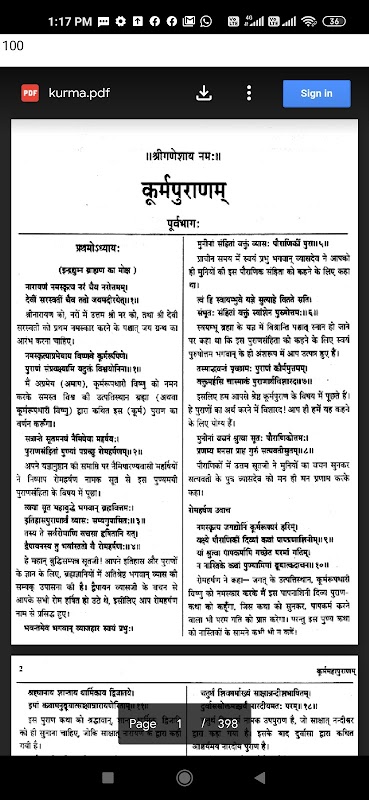 1:17 PM
36
100
PDF
kurma.pdf
Sign in
॥श्रीगणेशाय नमः॥
कूर्मपुराणम्
पूर्वभागः
प्रथमोऽध्यायः
(इन्द्रद्युम्न ब्राह्मण का मोक्ष)
नारायणं नमस्कृत्य नरं चैव नरोत्तमम्।
देवीं सरस्वतीं चैव ततो जयमुदीरयेत्॥१॥
श्रीनारायण को, नरों में उत्तम श्री नर को, तथा श्री देवी
सरस्वती को प्रथम नमस्कार करने के पश्चात् जय ग्रन्थ का
आरंभ करना चाहिए।
नमस्कृत्याप्रमेयाय विष्णवे कूर्मरूपिणे।
पुराणं संप्रवक्ष्यामि यदुक्तं विश्वयोनिना॥१॥
मैं अप्रमेय (अमाप), कूर्मरूपधारी विष्णु को नमन
करके समस्त विश्व की उत्पत्तिस्थान ब्रह्मा (अथवा
कूर्मरूपधारी विष्णु) द्वारा कथित इस (कूर्म) पुराण का
वर्णन करूँगा।
सत्रान्ते सूतमनघं नैमिषेया महर्षयः।
पुराणसंहितां पुण्यां पप्रच्छू रोमहर्षणम्॥२॥
अपने यज्ञानुष्ठान की समाप्ति पर नैमिषारण्यवासी महर्षियों
ने निष्पाप रोमहर्षण नामक सूत से इस पुण्यमयी
पुराणसंहिता के विषय में पूछा।
त्वया सूत महाबुद्धे भगवान् ब्रह्मवित्तमः।
इतिहासपुराणार्थं व्यासः सम्यगुपासितः॥३॥
तस्य ते सर्वरोमाणि वचसा हृषितानि यत्।
द्वैपायनस्य तु भवांस्ततो वै रोमहर्षणः॥४॥
हे महान् बुद्धिसम्पन्न सूतजी! आपने इतिहास और पुराणों
के ज्ञान के लिए, ब्रह्मज्ञानियों में अतिश्रेष्ठ भगवान् व्यास की
सम्यक् उपासना की है। द्वैपायन व्यासजी के वचन से
आपके सभी रोम हर्षित हो उठे थे, इसीलिए आप रोमहर्षण नाम
से प्रसिद्ध हुए।
भवन्तमेव भगवान् व्याजहार स्वयं प्रभुः।
मुनीनां संहितां वक्तुं व्यासः पौराणिकीं पुरा॥५॥
प्राचीन समय में स्वयं प्रभु भगवान् व्यासदेव ने आपको
ही मुनियों की इस पौराणिक संहिता को कहने के लिए कहा
था।
त्वं हि स्वायम्भुवे यज्ञे सुत्याहे वितते सति।
संभूतः संहितां वक्तुं स्वांशेन पुरुषोत्तमः॥६॥
स्वयम्भू ब्रह्मा के यज्ञ में विश्रान्ति पश्चात् स्नान हो जाने
पर कहा था कि इस पुराणसंहिता को कहने के लिए स्वयं
पुरुषोत्तम भगवान् के ही अंशरूप में आप उत्पन्न हुए हैं।
तस्माद्भवन्तं पृच्छामः पुराणं कौर्ममुत्तमम्।
वक्तुमर्हसि चास्माकं पुराणार्थविशारद॥७॥
इसलिए हम आपसे श्रेष्ठ कूर्मपुराण के विषय में पूछते हैं।
हे पुराणों का अर्थ करने में विशारद! आप ही हमें यह कहने
के लिए योग्य हैं।
मुनीनां वचनं श्रुत्वा सूतः पौराणिकोत्तमः।
प्रणम्य मनसा प्राह गुरुं सत्यवतीसुतम्॥८॥
पौराणिकों में उत्तम सूतजी ने मुनियों का वचन सुनकर
सत्यवती के पुत्र व्यासदेव को मन ही मन प्रणाम करके
कहा।
रोमहर्षण उवाच
नमस्कृत्य जगद्योनिं कूर्मरूपधरं हरिम्।
वक्ष्ये पौराणिकीं दिव्यां कथां पापप्रणाशिनीम्॥९॥
यां श्रुत्वा पापकर्मापि गच्छेत परमां गतिम्।
न नास्तिके कथां पुण्यामिमां ब्रूयात्कदाचन॥१०॥
रोमहर्षण ने कहा— जगत् के उत्पत्तिस्थान, कूर्मरूपधारी
विष्णु को नमस्कार करके मैं इस पापनाशिनी दिव्य पुराण-
कथा को कहूँगा, जिस कथा को सुनकर, पापकर्म करने
वाला भी परम गति को प्राप्त करेगा। परन्तु इस पुण्य कथा
को नास्तिकों के सामने कभी भी न कहें।
2
कूर्ममहापुराणम्
श्रद्दधानाय शान्ताय धार्मिकाय द्विजातये।
इमां कथामनुब्रूयात्साक्षान्नारायणेरिताम्॥११॥
इस पुराण कथा को श्रद्धावान्, शान्त,
को ही सुनाना चाहिए, जोकि साक्षात् नारायण के द्वारा कही
गयी है।
चतुर्थं शिवधर्माख्यं साक्षान्नन्दीशभाषितम्।
दुर्वाससोक्तमाश्चर्यं नारदीयमतः परम्॥१८॥
नामक उपपुराण है, जो साक्षात् नन्दीश्वर
द्वारा कहा गया है। इसके बाद दुर्वासा द्वारा कथित
आश्चर्यमय नारदीय पुराण है।
Page 1 / 398